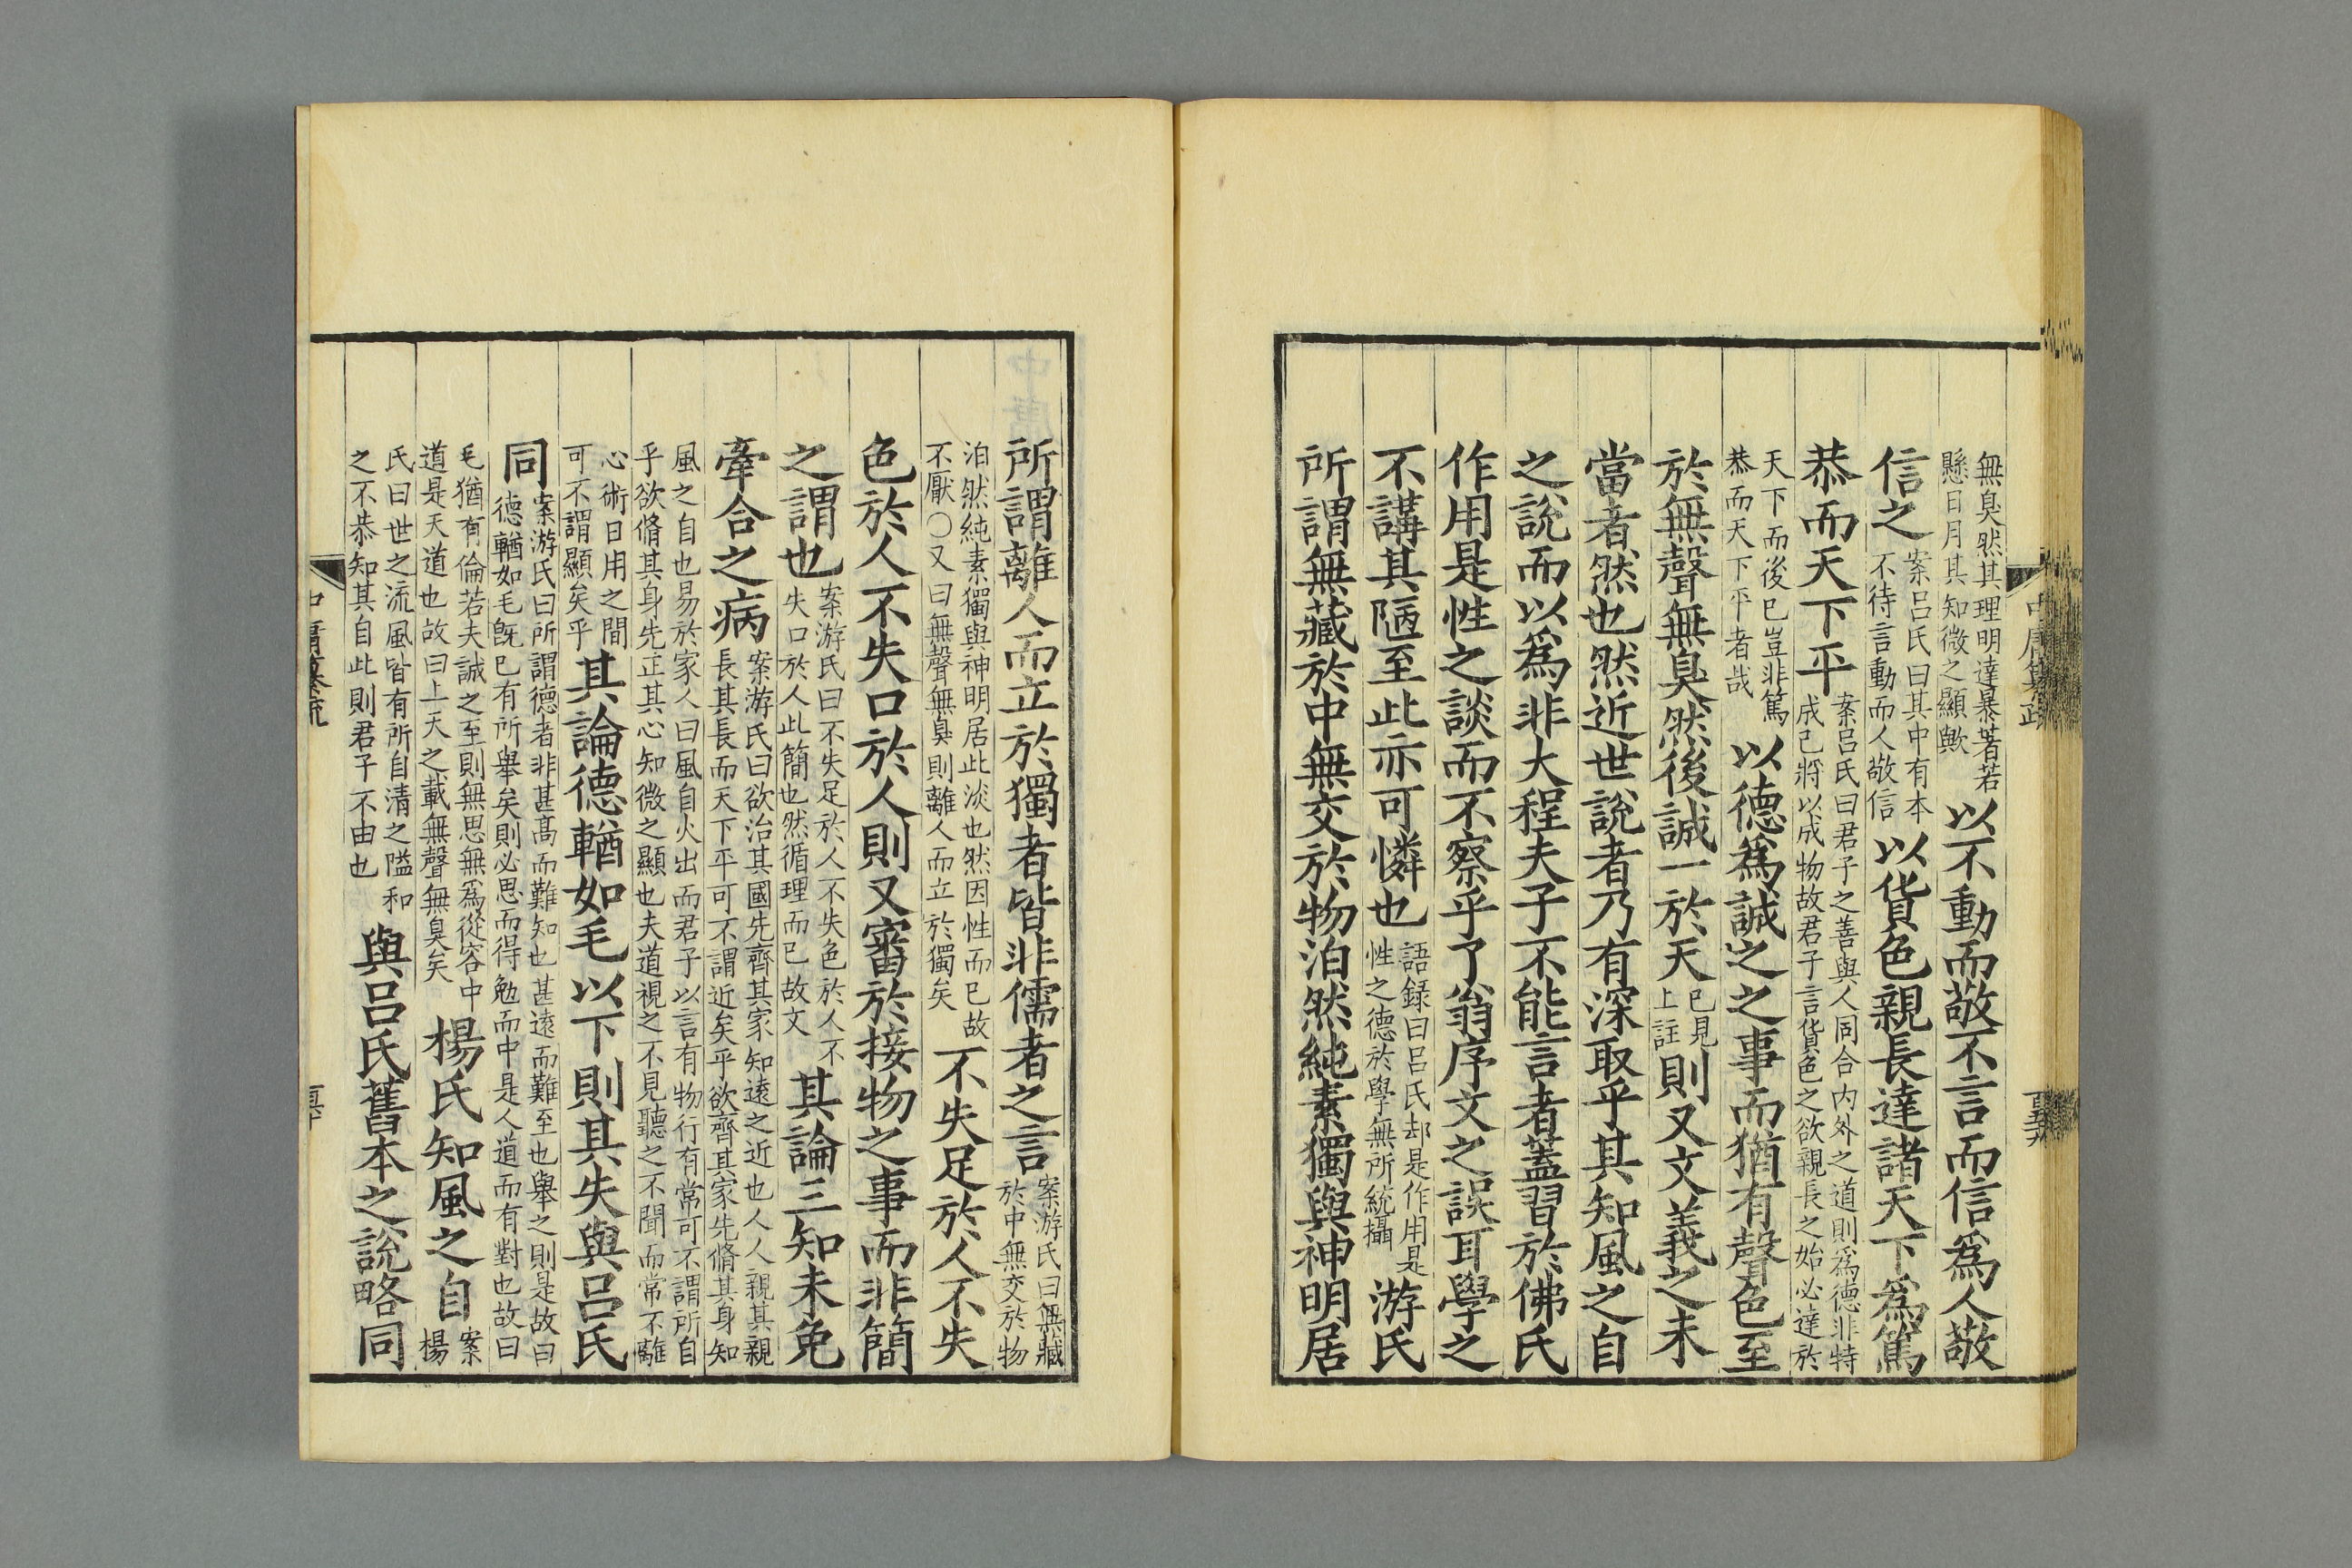 無臭然其理明達暴著若
懸日月其知微之顯歟
以不動而敬不言而信爲人敬
信之
案呂氏曰其中有本
不待言動而人敬信
以貨色親長達諸天下爲篤
恭而天下平
案呂氏曰君子之善與人同合内外之道則爲德非特
成己將以成物故君子言貨色之欲親長之始必達於
天下而後已豈非篤
恭而天下平者哉
以德爲誠之之事而猶有聲色至
於無聲無臭然後誠一於天
已見
上註
則又文義之未
當者然也然近世說者乃有深取乎其知風之自
之說而以爲非大程夫子不能言者蓋習於佛氏
作用是性之談而不察乎了翁序文之誤耳學之
不講其陋至此亦可憐也
語録曰呂氏却是作用是
性之德於學無所統攝
游氏
所謂無藏於中無交於物泊然純素獨與神明居
所謂離人而立於獨者皆非儒者之言
案游氏曰無藏
於中無交於物
泊然純素獨與神明居此淡也然因性而已故
不厭〇又曰無聲無臭則離人而立於獨矣
不失足於人不失
色於人不失口於人則又審於接物之事而非簡
之謂也
案游氏曰不失足於人不失色於人不
失口於人此簡也然循理而已故文
其論三知未免
牽合之病
案游氏曰欲治其國先齊其家知遠之近也人人親其親
長其長而天下平可不謂近矣乎欲齊其家先脩其身知
風之自也易於家人曰風自火出而君子以言有物行有常可不謂所自
乎欲脩其身先正其心知微之顯也夫道視之不見聽之不聞而常不離
心術日用之間
可不謂顯矣乎
其論德輶如毛以下則其失與呂氏
同
案游氏曰所謂德者非甚髙而難知也甚遠而難至也舉之則是故曰
德輶如毛旣已有所舉矣則必思而得勉而中是人道而有對也故曰
毛猶有倫若夫誠之至則無思無爲從容中
道是天道也故曰上天之載無聲無臭矣
楊氏知風之自
案
楊
氏曰世之流風皆有所自清之隘和
之不恭知其自此則君子不由也
與呂氏舊本之說略同